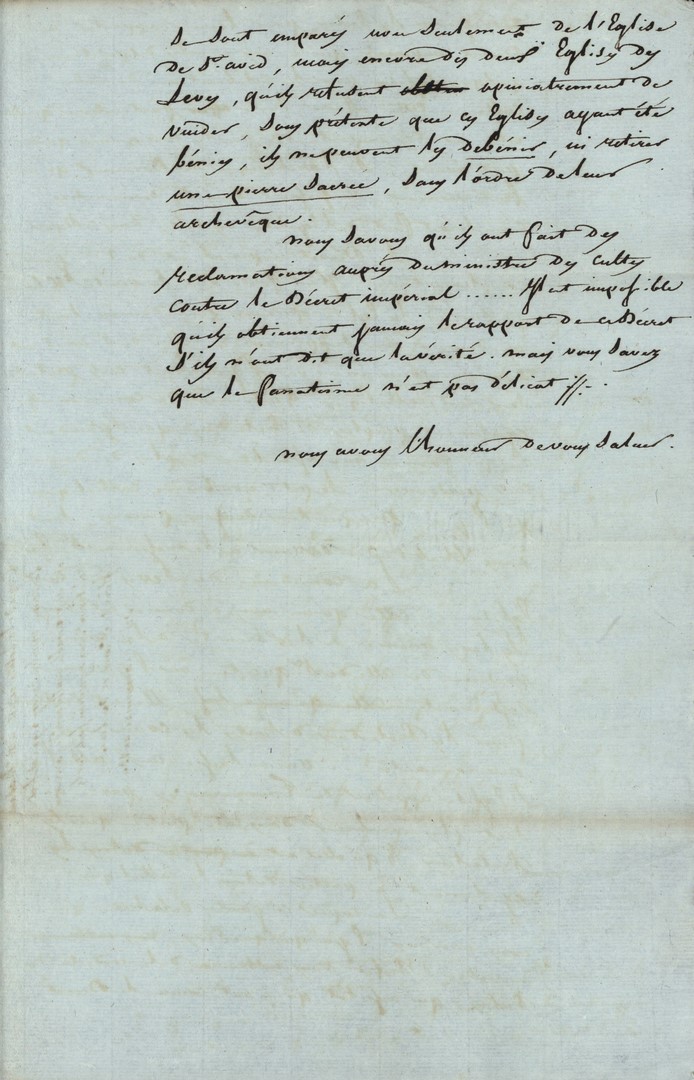 Se Sont emparés non Seulement de l'Eglise
de St. avid, mais encore des deux Eglises des
Leves, qu'ils refusent opiniatrement de
vuider, Sous prétexte que ces Eglises ayant été
bénies, ils ne peuvent les debénir, ni retirer
une pierre Sacrée, Sans l'ordre de leur
archevêque.
nous Savons qu'ils ont fait des
reclamations auprés du ministre des cultes
contre le Décret impérial ...... Il est impossible
qu'ils obtiennent jamais le rapport de ce Décret
S'ils n'ont dit que la vérité. mais vous Savez
que le fanatisme n'est pas délicat //-.
nous avons l'honneur de vous Saluer.